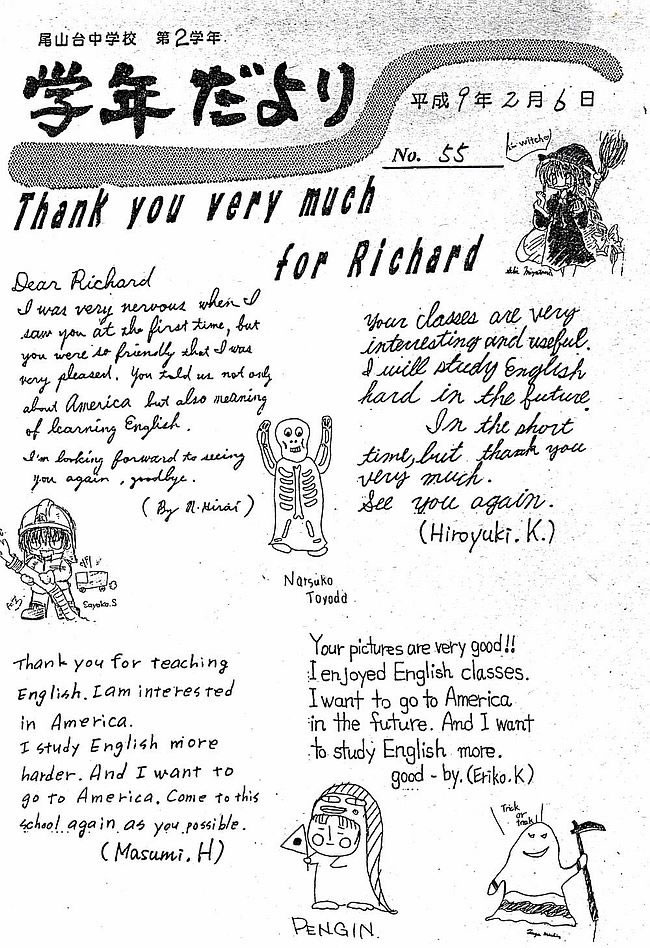 尾山台中学校 第2学年
学年だより
平成9年2月6日
No. 55
Thank you very much
for Richard
Dear Richard
I was very nervous when I
saw you at the first time, but
you were so friendly that I was
very pleased. You told us not only
about America but also meaning
of learning English.
I'm looking forward to seeing
you again, goodbye.
(By N.Hirai)
Your classes are very
interesting and useful.
I will study English
hard in the future.
In the short
time, but thank you
very much.
See you again.
(Hiroyuki.K.)
Sayaka.S
Natsuko
Toyoda
Thank you for teaching
English. I am interested
in America.
I study English more
harder. And I want to
go to America. Come to this
school again as you possible.
(Masumi.H)
Your pictures are very good!!
I enjoyed English classes.
I want to go to America
in the future. And I want
to study English more.
good-by. (Eriko.K)
PENGIN.
Trick
or
treat!